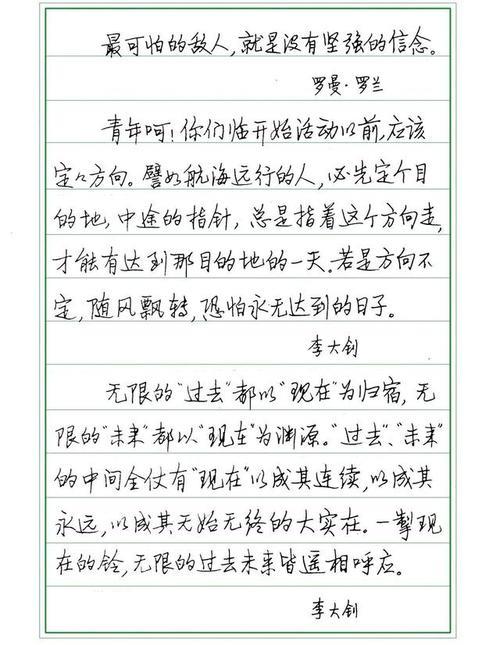 最可怕的敌人,就是没有坚强的信念。
罗曼·罗兰
青年呵!你们临开始活动以前,应该
定々方向。譬如航海远行的人,必先定个目
的地,中途的指针,总是指着这个方向走,
才能有达到那目的地的一天。若是方向不
定,随风飘转,恐怕永无达到的日子。
李大钊
无限的“过去”都以“现在”为归宿,无
限的“未来”都以“现在”为渊源。“过去”、“未来”
的中间全仗有“现在”以成其连续,以成其
永远,以成其无始无终的大实在。一掣现
在的铃,无限的过去未来皆遥相呼应。
李大钊